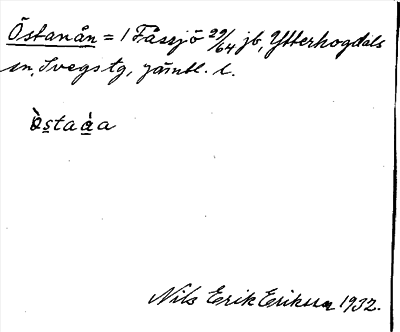 Östanån = 1 Fåssjö 29/64 jb, Ytterhogdals
sn, Svegs tg, Jämtl. l.
òstaàa
Nils Erik Eriksson 1932.